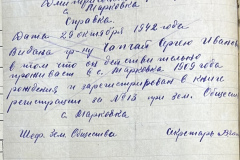 с. Марковка
Справка
Дана 29 октября 1942 года
Выдана гр-ну Сергею Иванов
в том что он действительно
проживает в с. Марковка 1909 года
рождения и зарегистрирован в книге
регистрации за № 13 при зем. Обществе
с. Марковка
зем. Общества Секретарь